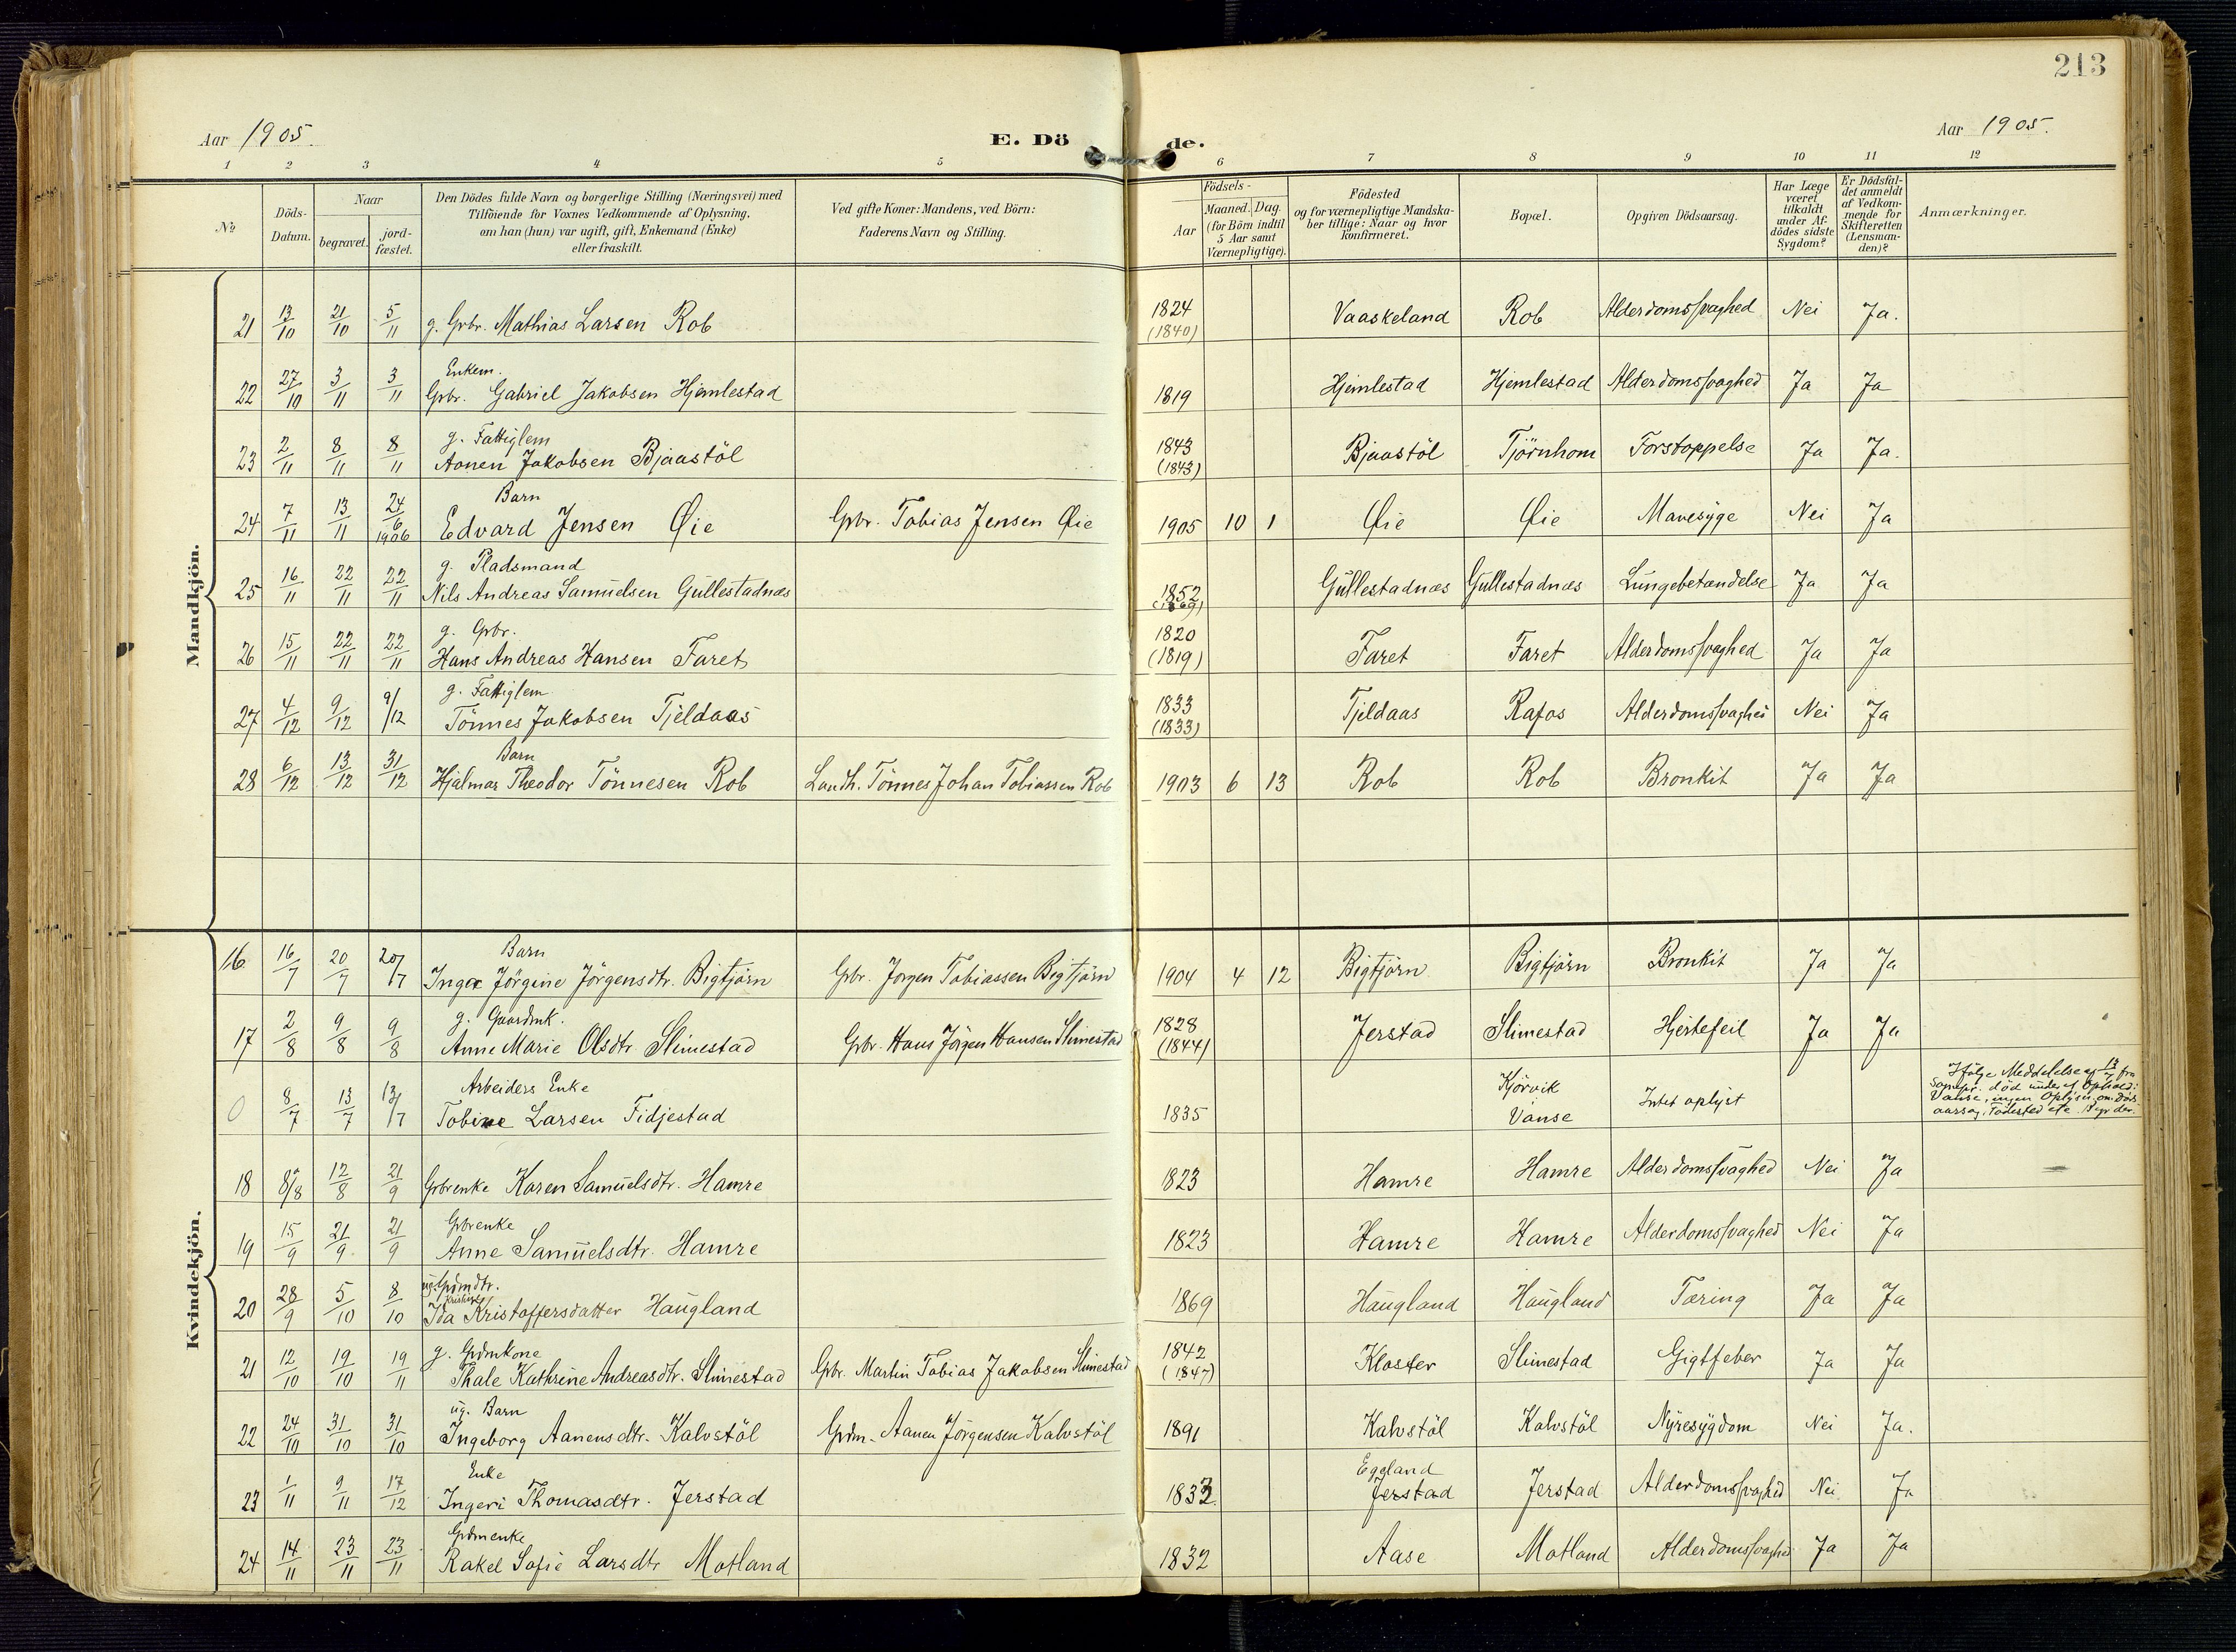 213
Aar 1905. E. Dö de. Aar 1905.
1 2 3 4 5 6 7 8 9 10 11 12
No Döds-Datum. Naar begravet. jord-fæstet. Den Dödes fulde Navn og borgerlige Stilling (Næringsvei) med Tilföiende for Voxnes Vedkommende af Oplysning, om han (hun) var ugift, gift, Enkemand (Enke) eller fraskilt. Ved gifte Koner: Mandens, ved Börn: Faderens Navn og Stilling. Födsels- Aar Maaned. Dag. (for Börn indtil 5 Aar samt Værnepligtige). Födested og for værnepligtige Mandska-ber tillige: Naar og hvor konfirmeret. Bopæl. Opgiven Dödsaarsag. Har Læge været tilkaldt under Af-dödes sidste Sygdom? Er Dödsfal-det anmeldt af Vedkom-mende for Skifteretten (Lensman-den)? Anmærkninger.
Mandkjön.
21 13/10 21/10 5/11 g. Gbr. Mathias Larsen Rob 1824 (1840) Vaaskeland Rob Alderdomssvaghed Nei Ja.
22 27/10 3/11 3/11 Enkem. Gbr. Gabriel Jakobsen Hjemlestad 1819 Hjemlestad Hjemlestad Alderdomssvaghed Ja Ja
23 2/11 8/11 8/11 g. Fattiglem Aanen Jakobsen Bjaastöl 1843 (1843) Bjaastöl Tjörnhom Forstoppelse Ja Ja.
24 7/11 13/11 24/6 1906 Barn Edvard Jensen Øie Gbr. Tobias Jensen Øie 1905 10 1 Øie Øie Mavesyge Nei Ja
25 16/11 22/11 22/11 g. Pladsmand Nils Andreas Samuelsen Gullestadnæs 1852 Gullestadnæs Gullestadnæs Lungebetændelse Ja Ja
26 15/11 22/11 22/11 g. Gbr. Hans Andreas Hansen Faret 1820 (1819) Faret Faret Alderdomssvaghed Ja Ja
27 4/12 9/12 9/12 g. Fattiglem Tönnes Jakobsen Tjeldaas 1833 (1833) Tjeldaas Rafos Alderdomssvaghed Nei Ja
28 6/12 13/12 31/12 Barn Hjalmar Theodor Tönnesen Rob Landh. Tönnes Johan Tobiassen Rob 1903 6 13 Rob Rob Bronkit Ja Ja
Kvindekjön.
16 16/7 20/7 20/7 Barn Inga Jörgine Jörgensdtr. Bigtjörn Gbr. Jorgen Tobiassen Bigtjörn 1904 4 12 Bigtjörn Bigtjörn Bronkit Ja Ja
17 2/8 9/8 9/8 g. Gaardmk. Anne Marie Olsdtr. Slimestad Gbr. Hans Jörgen Hansen Slimestad 1828 (1844) Jerstad Slimestad Hjertefeil Ja Ja
0 8/7 13/7 13/7 Arbeiders Enke Tobine Larsen Fidjestad 1835 Kjörvik Vanse Intet oplyst Ifölge Meddelelse af 13/7 fra Sognepr. död under et Ophold i Vanse, ingen Oplysn. om Döds-aarsag, Födested etc.
18 8/8 12/8 21/9 Gbrenke Karen Samuelsdtr. Hamre 1823 Hamre Hamre Alderdomssvaghed Nei Ja
19 15/9 21/9 21/9 Gbrenke Anne Samuelsdtr. Hamre 1823 Hamre Hamre Alderdomssvaghed Nei Ja
20 28/9 5/10 8/10 ug. Gdmdtr. Ida Kristoffersdatter Haugland 1869 Haugland Haugland Tæring Ja Ja
21 12/10 19/10 19/11 g. Gdmkone Thale Kathrine Andreasdtr. Slimestad Gbr. Martin Tobias Jakobsen Slimestad 1842 (1847) Kloster Slimestad Gigtfeber Ja Ja
22 24/10 31/10 31/10 ug. Barn Ingeborg Aanensdtr. Kalvstöl Gdm. Aanen Jörgensen Kalvstöl 1891 Kalvstöl Kalvstöl Nyresygdom Nei Ja.
23 1/11 9/11 17/12 Enke Ingeri Thomasdtr. Jerstad 1832 Eggland Jerstad Jerstad Alderdomssvaghed Nei Ja
24 14/11 23/11 23/11 Gdmenke Rakel Sofie Larsdtr Motland 1832 Aase Motland Alderdomssvaghed Ja Ja